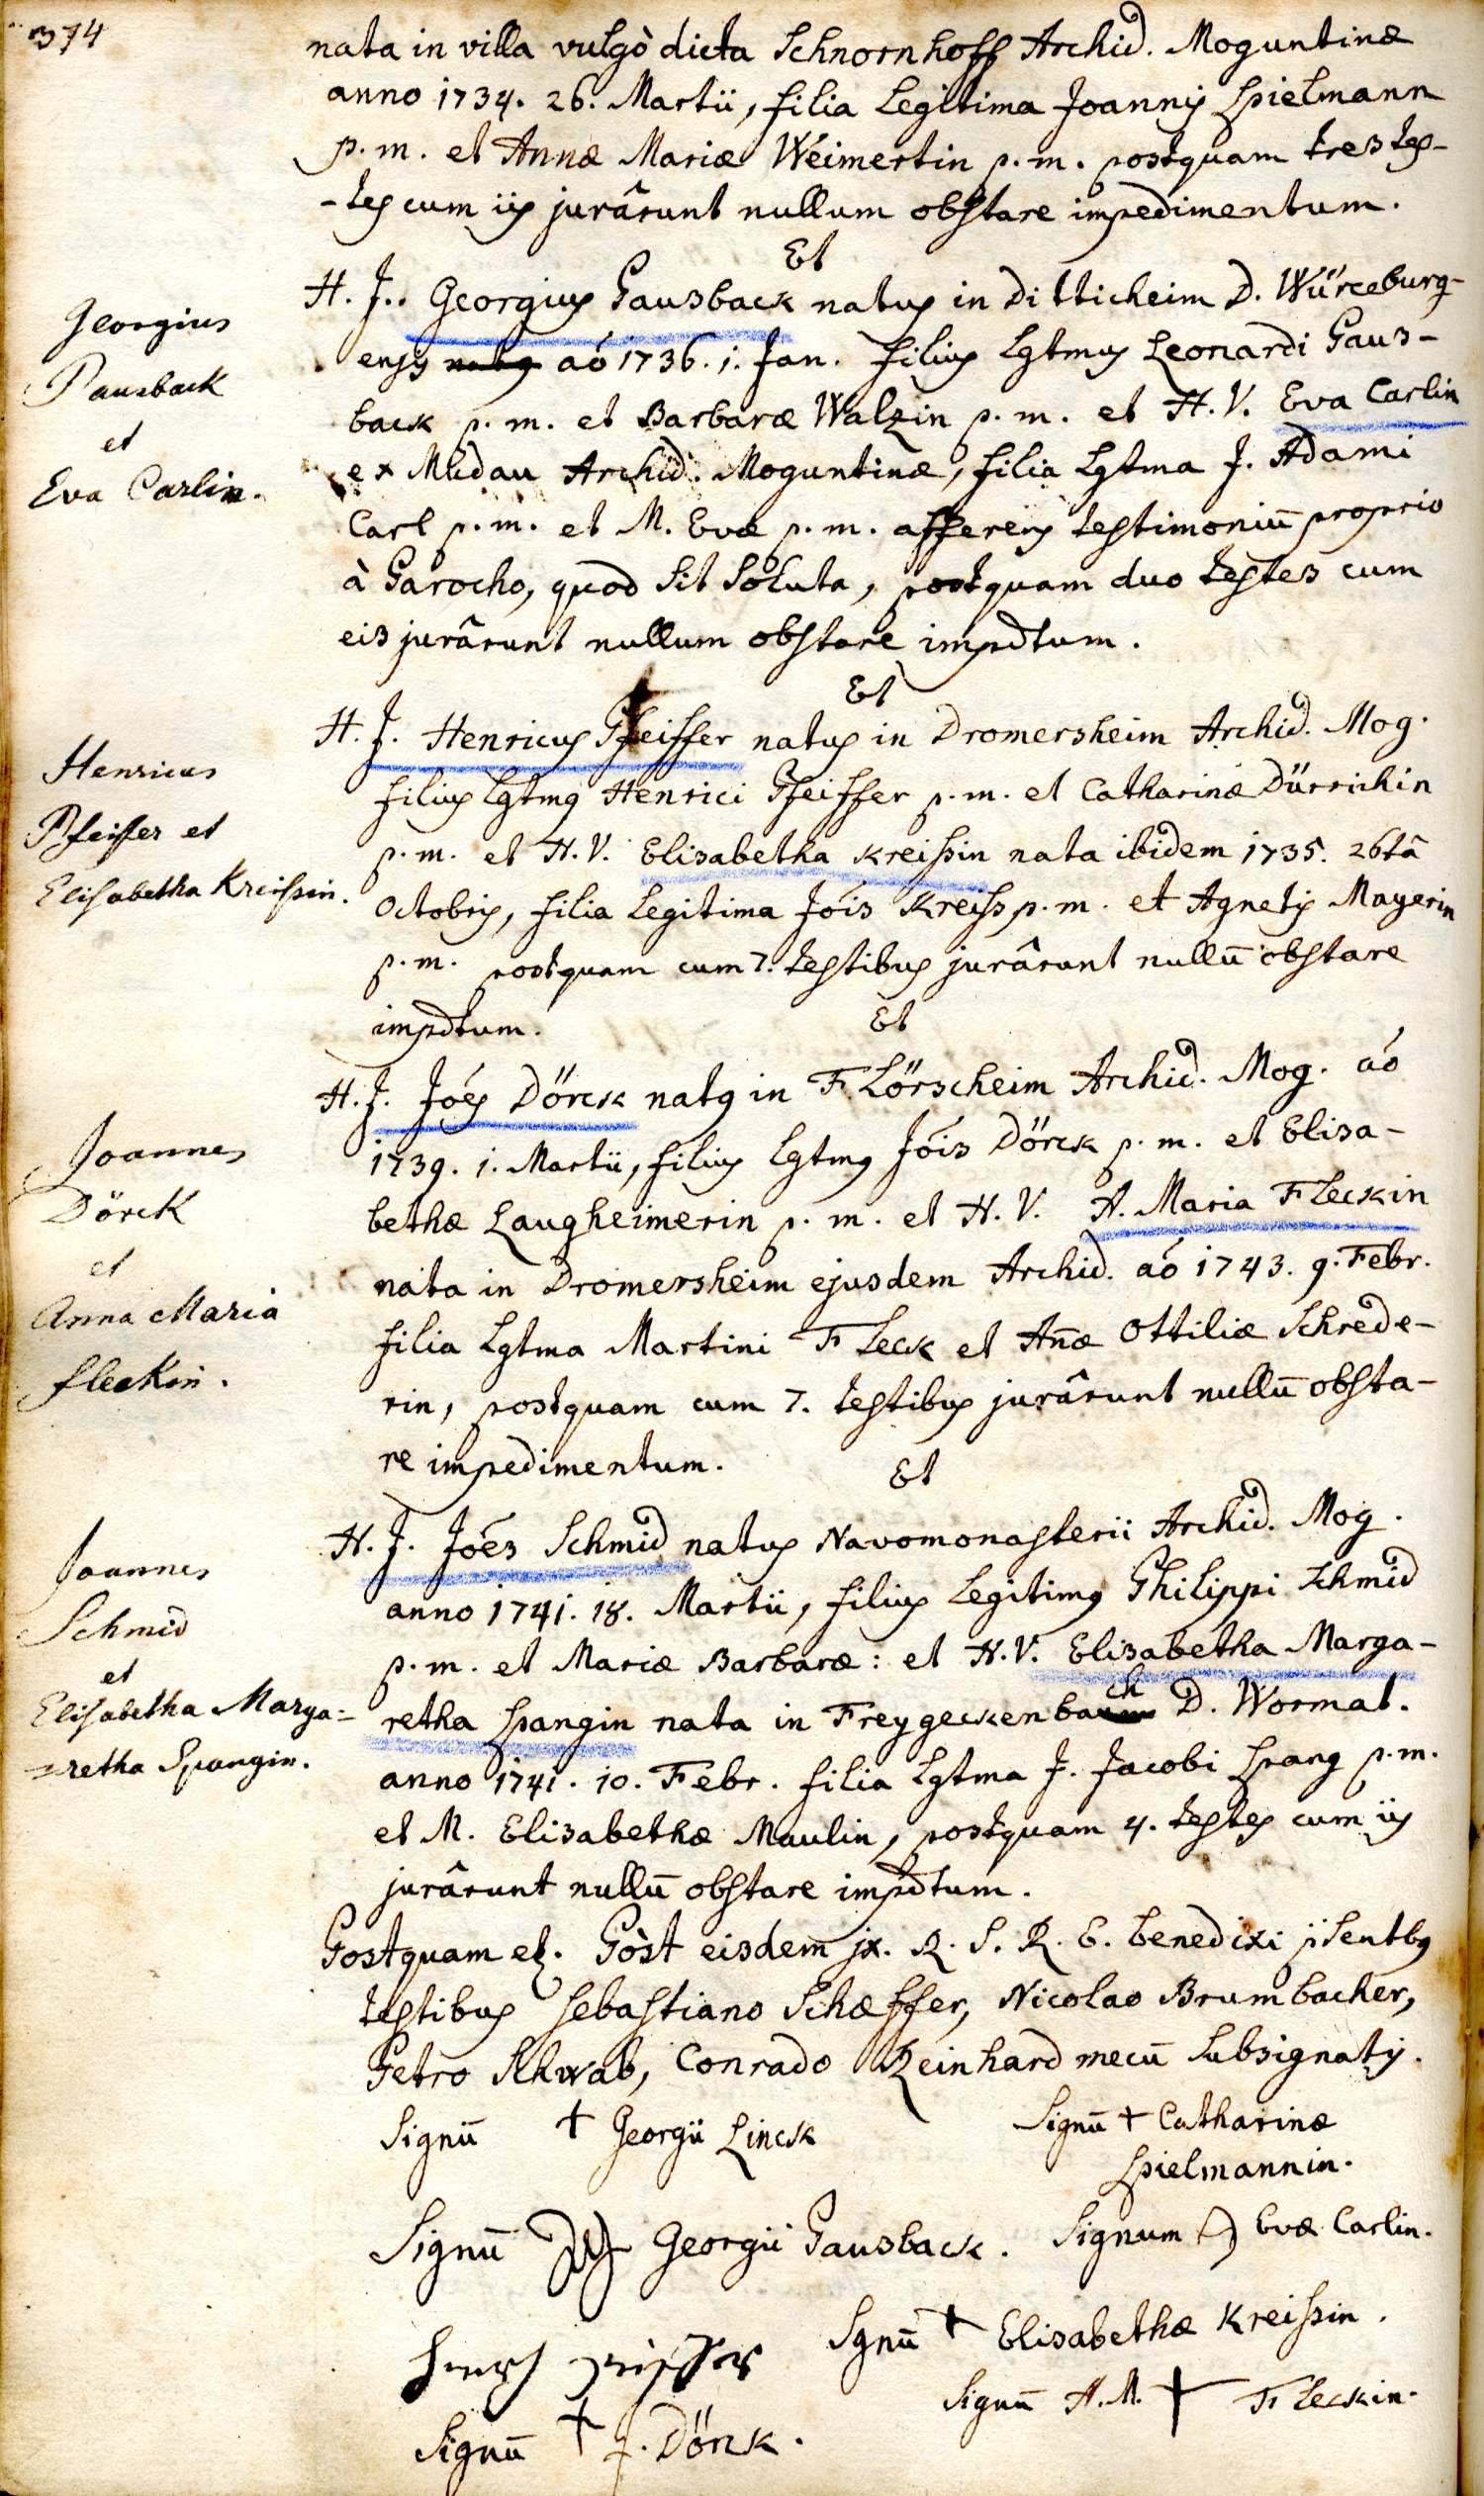 374
nata in villa vulgò dicta Schnornhoff Archid. Moguntinæ
anno 1734. 26. Martii, filia Legitima Joannis Spielmann
p.m. et Annæ Mariæ Weimertin p.m. postquam tres tes-
-tes cum iis jurârunt nullum obstare impedimentum.
Et
H. J. Georgius Pausback natus in Ditticheim D. Würceburg-
ensis natus aó 1736. 1. Jan. filius Lgtmus Leonardi Paus-
back p.m. et Barbaræ Walzin p.m. et H.V. Eva Carlin
ex Mudau Archid. Moguntinæ, filia Lgtma J. Adami
Carl p.m. et M. Evæ p.m. afferens testimoniū proprio
à Parocho, quod sit soluta, postquam duo testes cum
eis jurârunt nullum obstare impdtum.
Georgius
Pausback
et
Eva Carlin.
Et
H. J. Henricus Pfeiffer natus in Dromersheim Archid. Mog.
filius Lgtmus Henrici Pfeiffer p.m. et Catharinæ Dürrichin
p.m. et H.V. Elisabetha Kreißin nata ibidem 1735. 26tâ
Octobris, filia Legitima Jóis Kreiss p.m. et Agnetis Mayerin
p.m. postquam cum 7. testibus jurârunt nullū obstare
impdtum.
Henricus
Pfeiffer et
Elisabetha Kreissin.
Et
H. J. Jóes Dörck natus in Flörscheim Archid. Mog. aó
1739. 1. Martii, filius Lgtmus Jóis Dörck p.m. et Elisa-
bethæ Laugheimerin p.m. et H.V. A. Maria Fleckin
nata in Dromersheim ejusdem Archid. aó 1743. 9. Febr.
filia Lgtma Martini Fleck et Añæ Ottiliæ Schrede-
rin, postquam cum 7. testibus jurârunt nullū obsta-
re impedimentum.
Joannes
Dörck
et
Anna Maria
fleckin.
Et
H. J. Jóes Schmid natus Navomonasterii Archid. Mog.
anno 1741. 18. Martii, filius Legitimus Philippi Schmid
p.m. et Mariæ Barbaræ: et H.V. Elisabetha Marga-
retha Spangin nata in Freygeckenbach D. Wormat.
anno 1741. 10. Febr. filia Lgtma J. Jacobi Spang p.m.
et M. Elisabethæ Maulin, postquam 4. testes cum iis
jurârunt nullū obstare impdtum.
Joannes
Schmid
et
Elisabetha Marga=
=retha Spangin.
Postquam et. Pòst eisdem jx. R. S. R. E. benedixi pſentbus
testibus Sebastiano Schæffer, Nicolao Brumbacher,
Petro Schwab, Conrado Reinhard mecū subsignatis.
Signū + Georgii Linck
Signū + Catharinæ
Spielmannin.
Signū Georgii Pausback.
Signum Evæ Carlin.
Sgnū + Elisabethæ Kreißin.
Signū A.M. + Fleckin.
Signū + J. Dörck.